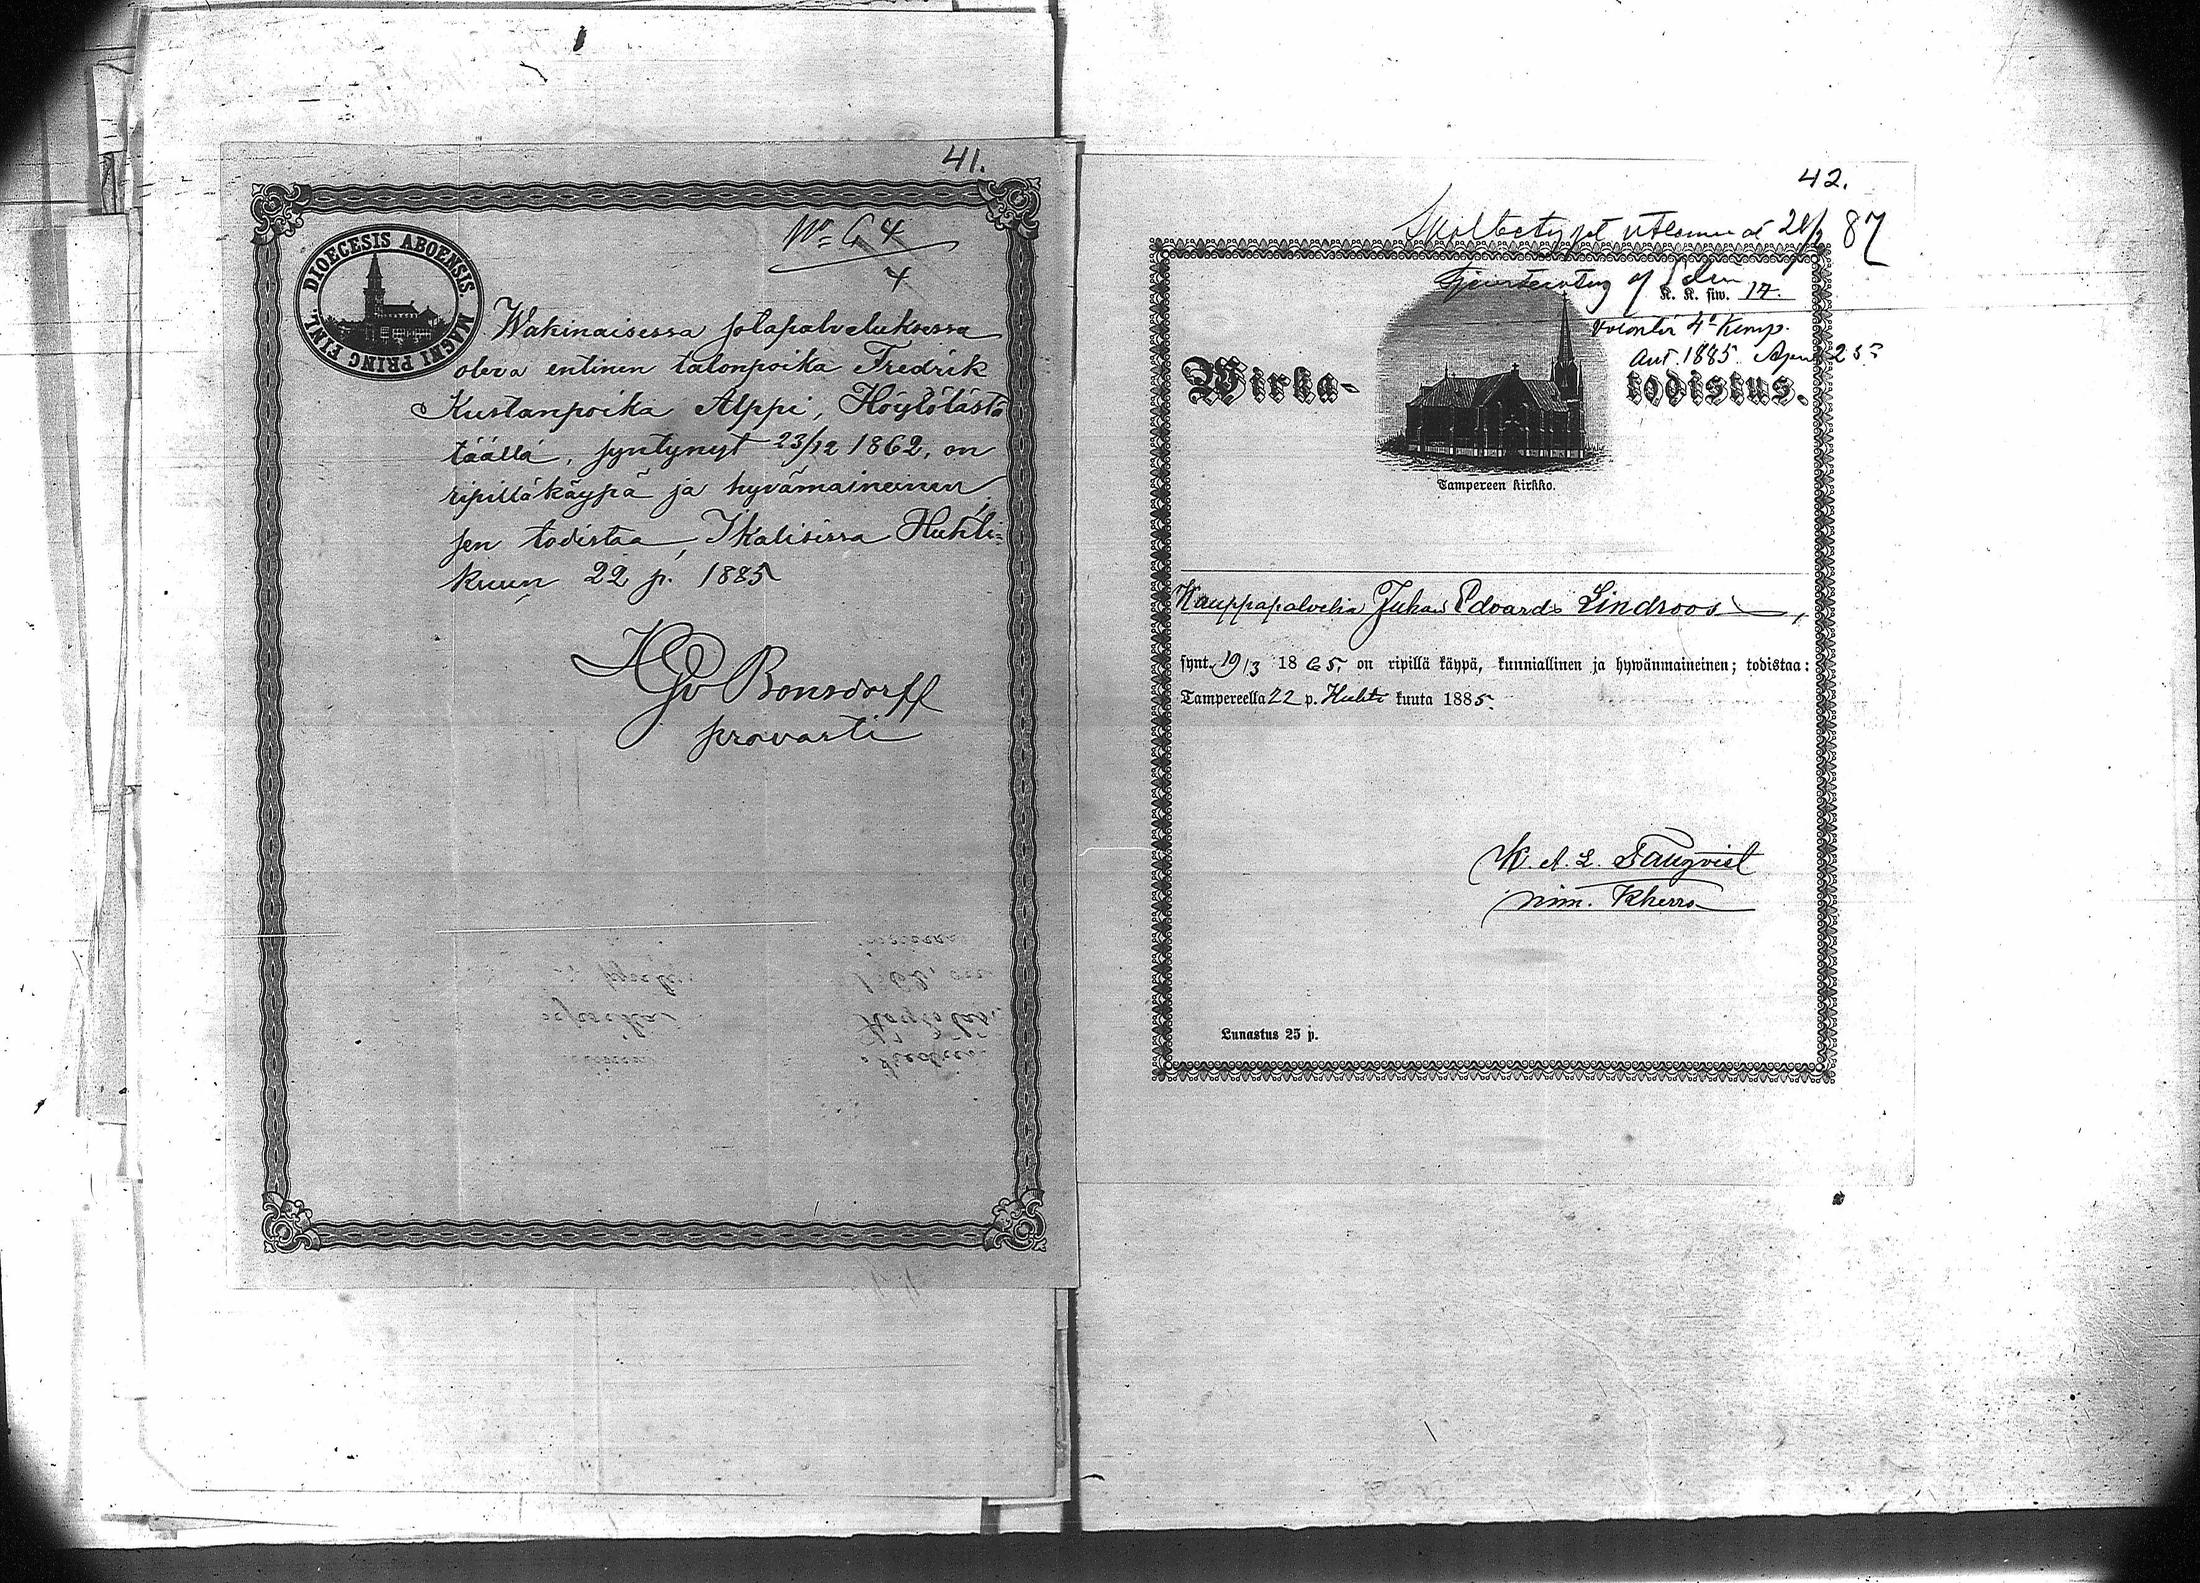 41.
No 64
4
DIOECESIS ABOENSIS. MAGNI PRINC FINL.
Wakinaisessa sotapalveluksessa
oleva entinen talonpoika Fredrik
Kustanpoika Alppi, Höytölästä
täällä, syntynyt 23/12 1862, on
ripillä käypä ja hyvämaineinen
sen todistaa, Ikalisissa Huhti=
kuun 22 p. 1885
KG v Bonsdorff
provasti
42.
Skolbetyget 87
K. K. siw. 17.
Volontär 4e Komp.
Ant 1885 April 25
Wirka-todistus.
Tampereen kirkko.
Kauppapalvelia Juhan Edvard Lindroos,
synt. 19/3 1865 on ripillä käypä, kunniallinen ja hywänmaineinen; todistaa:
Tampereella 22 p. Huhti kuuta 1885.
K. A. L.
nim.
Lunastus 25 p.